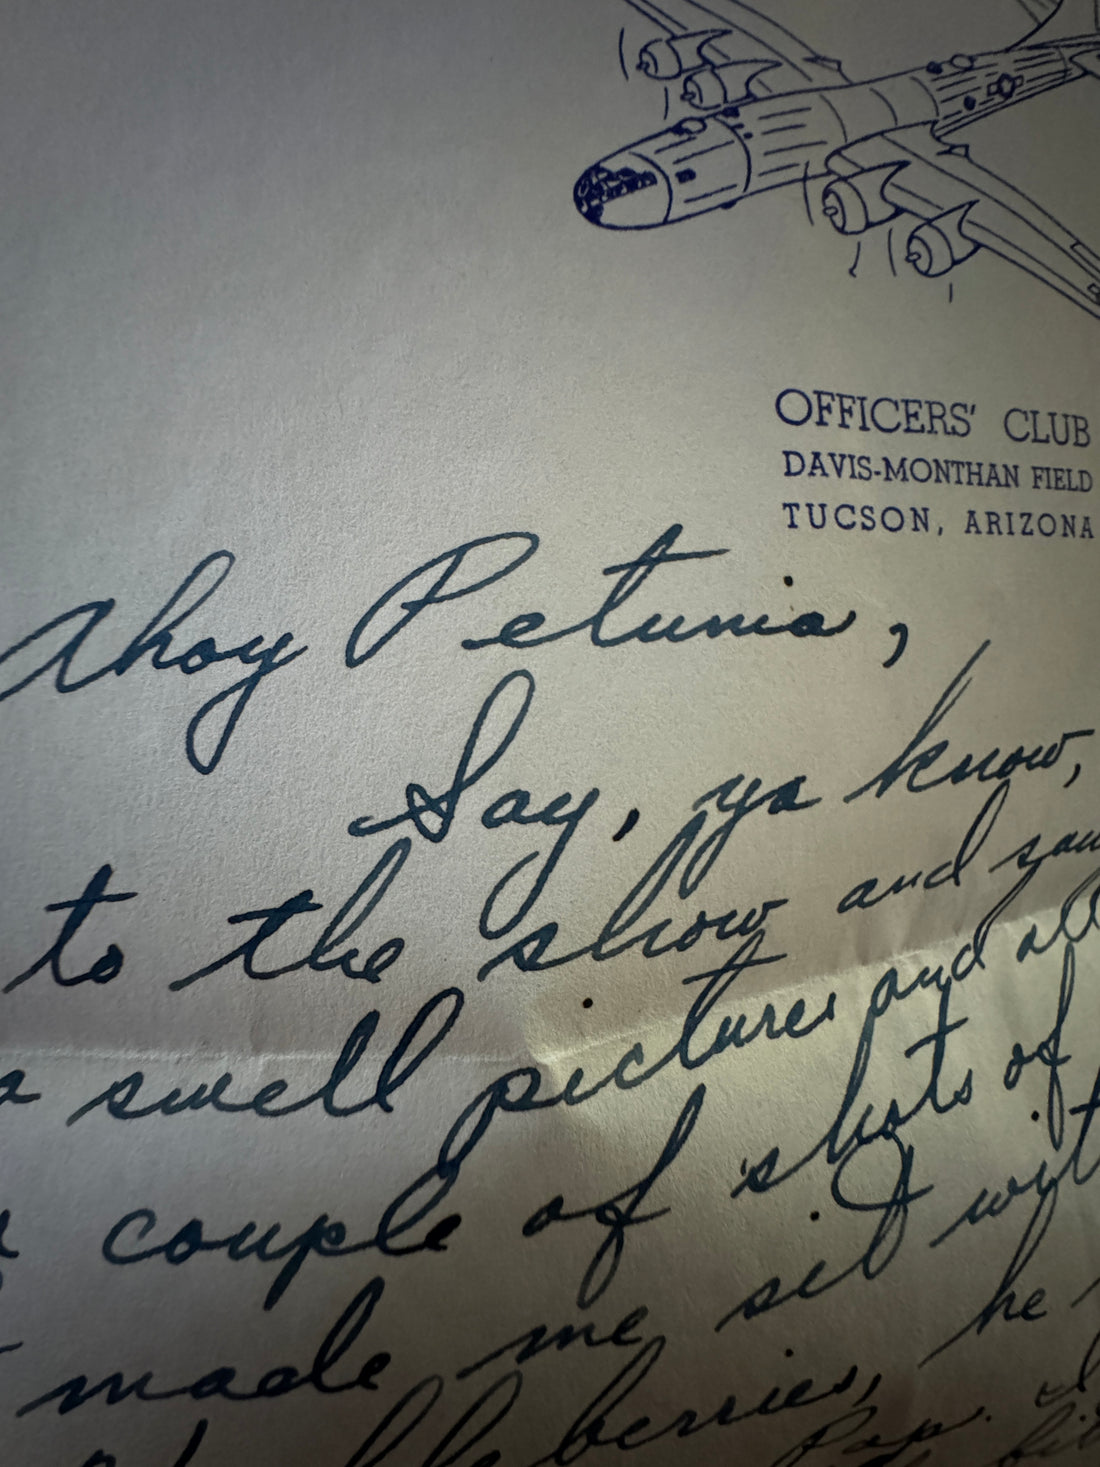 OFFICERS' CLUB
DAVIS-MONTHAN FIELD
TUCSON, ARIZONA
Ahoy Petunia,
Say, ya know,
to the show and saw
a swell picture and all
couple of shots of
made me sit with
berries, he
Pop. I